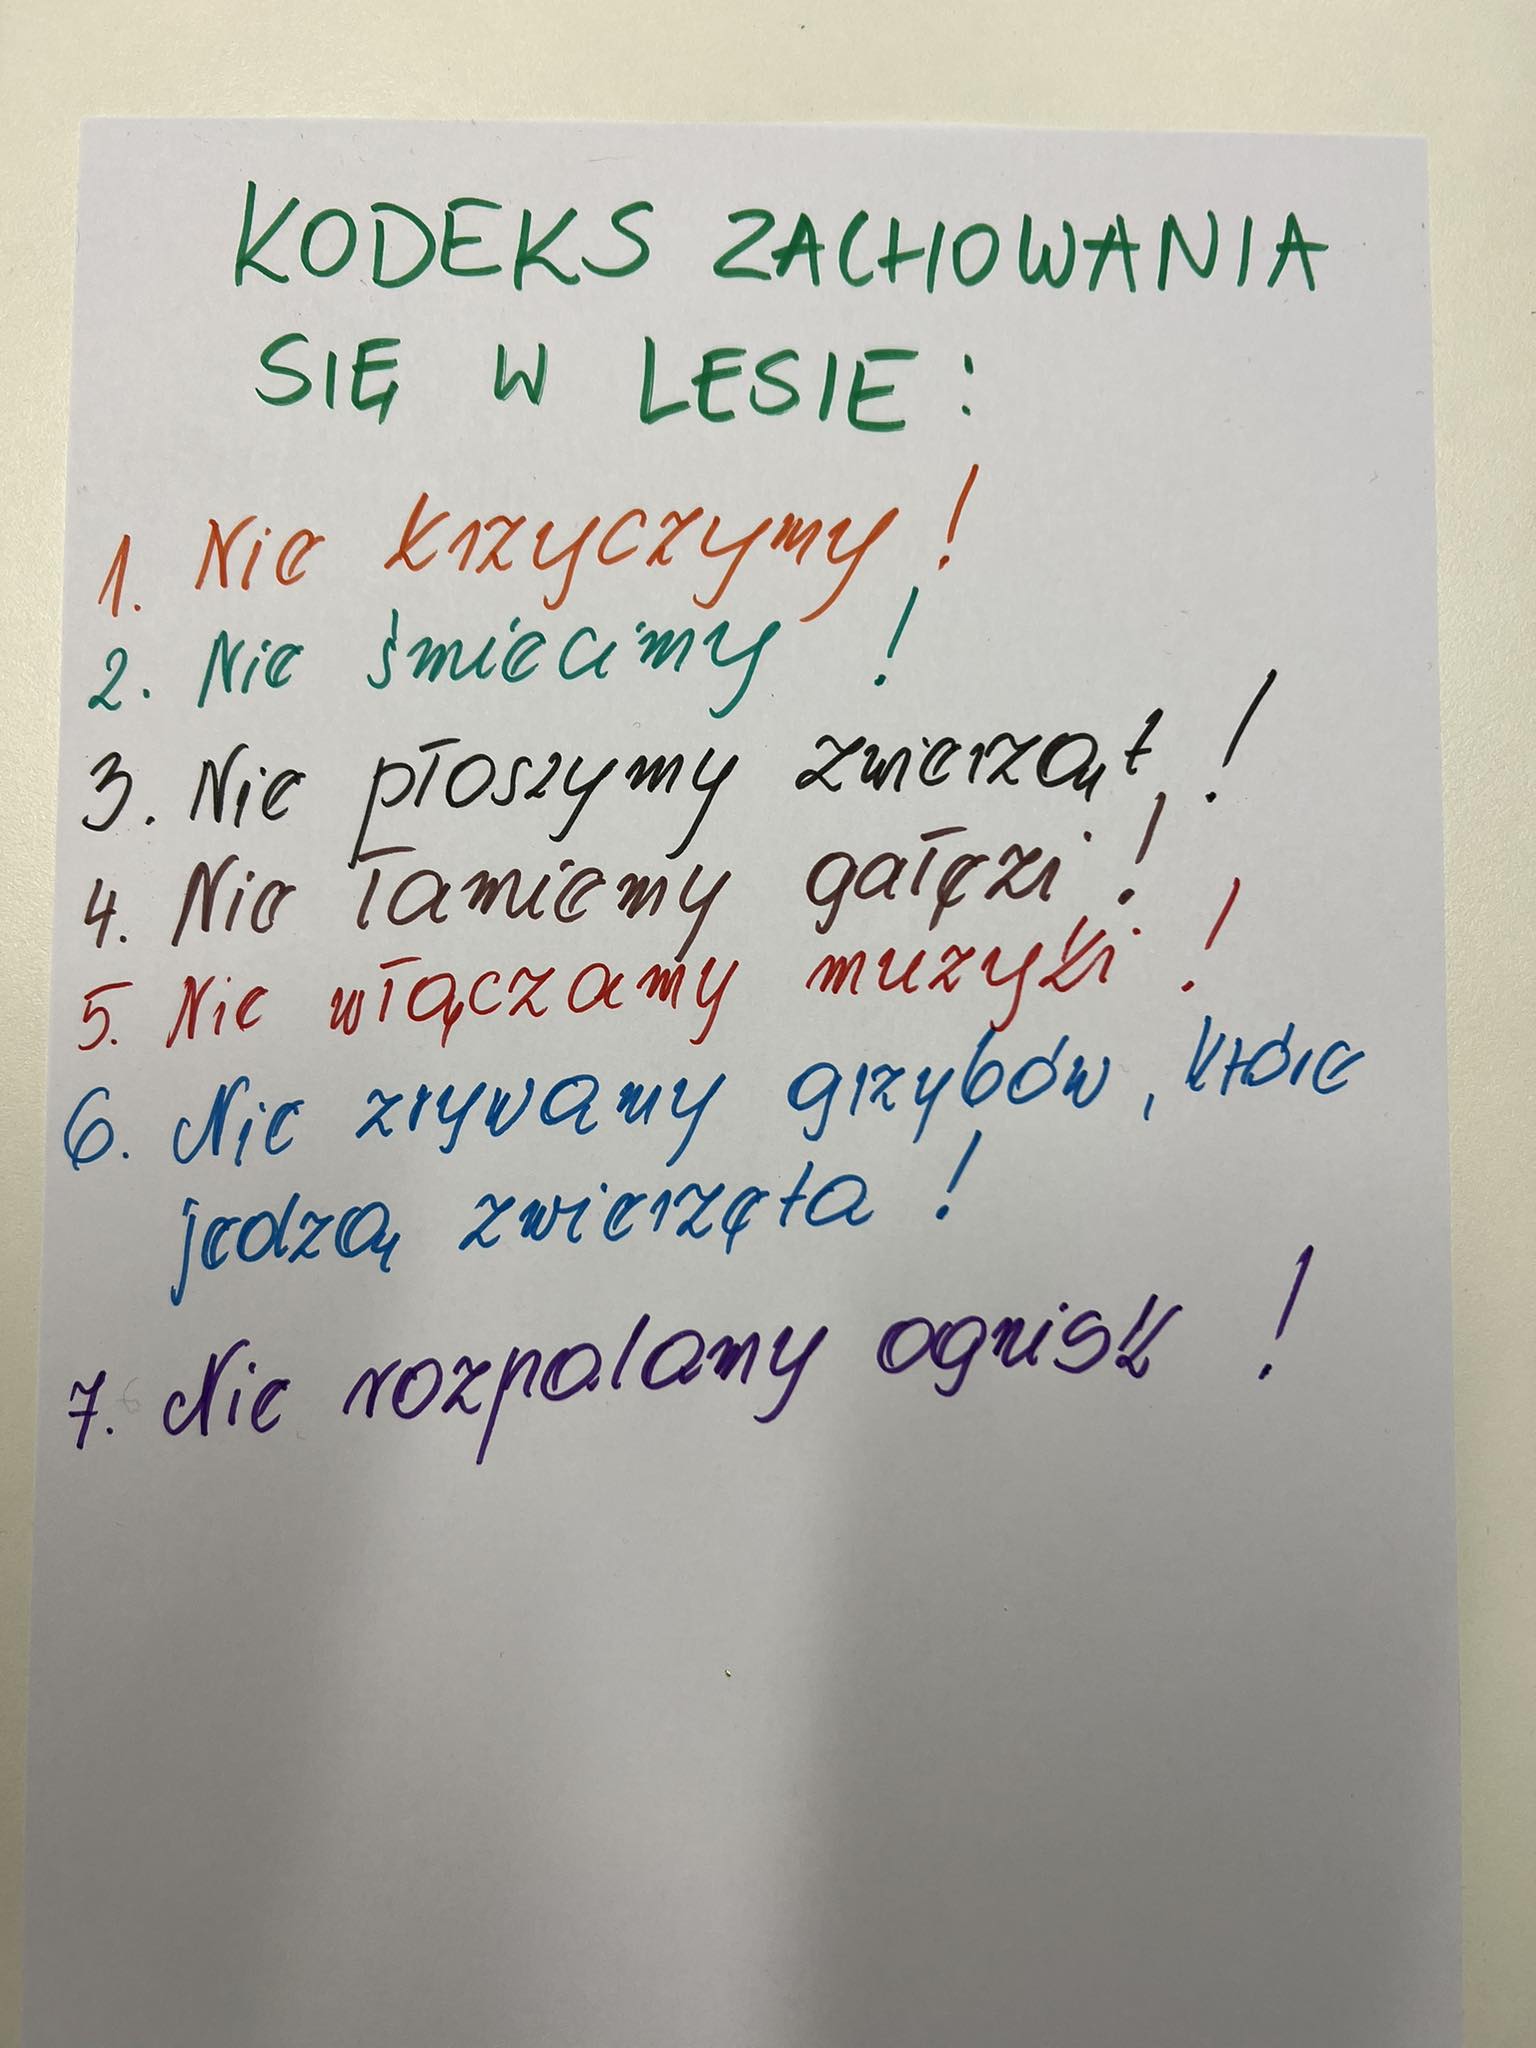 KODEKS ZACHOWANIA
SIĘ W LESIE :
1. Nie krzyczymy !
2. Nie śmiecimy !
3. Nie płoszymy zwierząt !
4. Nie łamiemy gałęzi !
5. Nie włączamy muzyki !
6. Nie zrywamy grzybów, które
jedzą zwierzęta !
7. Nie rozpalamy ognisk !